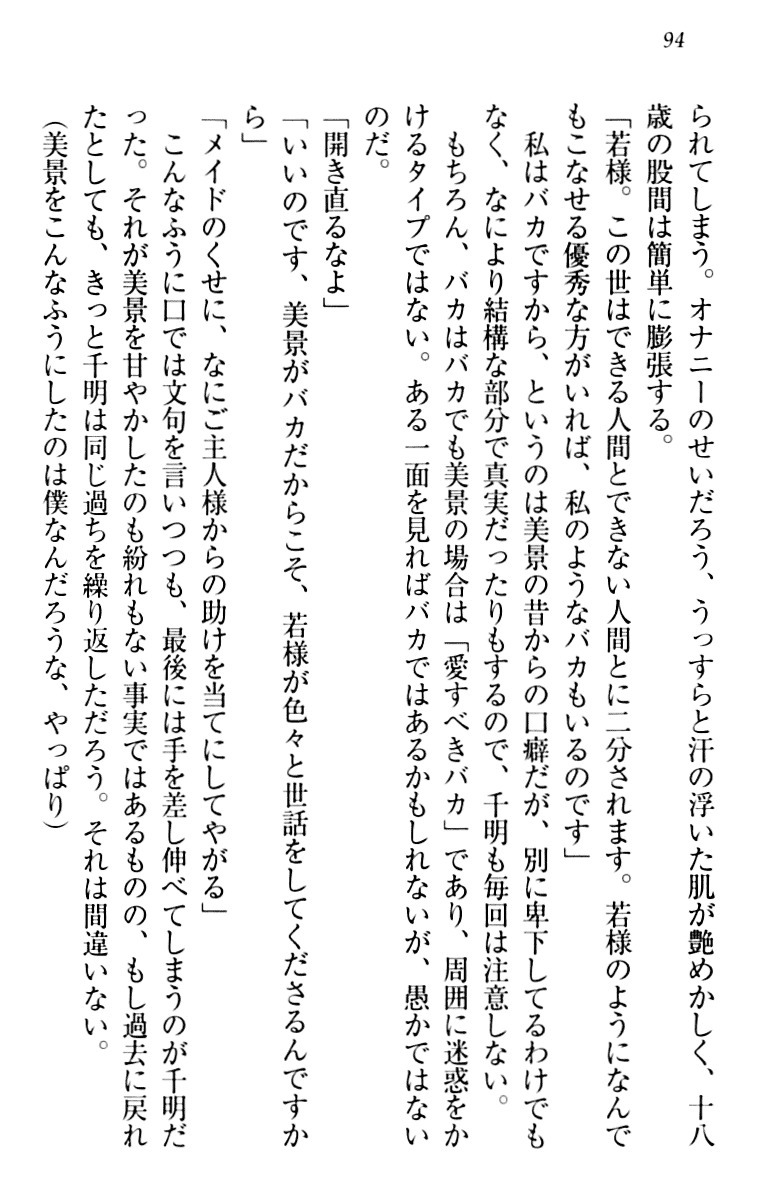 94
られてしまう。オナニーのせいだろう、うっすらと汗の浮いた肌が艶めかしく、十八
歳の股間は簡単に膨張する。
「若様。この世はできる人間とできない人間とに二分されます。若様のようになんで
もこなせる優秀な方がいれば、私のようなバカもいるのです」
　私はバカですから、というのは美景の昔からの口癖だが、別に卑下してるわけでも
なく、なにより結構な部分で真実だったりもするので、千明も毎回は注意しない。
　もちろん、バカはバカでも美景の場合は「愛すべきバカ」であり、周囲に迷惑をか
けるタイプではない。ある一面を見ればバカではあるかもしれないが、愚かではない
のだ。
「開き直るなよ」
「いいのです、美景がバカだからこそ、若様が色々と世話をしてくださるんですか
ら」
「メイドのくせに、なにご主人様からの助けを当てにしてやがる」
　こんなふうに口では文句を言いつつも、最後には手を差し伸べてしまうのが千明だ
った。それが美景を甘やかしたのも紛れもない事実ではあるものの、もし過去に戻れ
たとしても、きっと千明は同じ過ちを繰り返しただろう。それは間違いない。
（美景をこんなふうにしたのは僕なんだろうな、やっぱり）